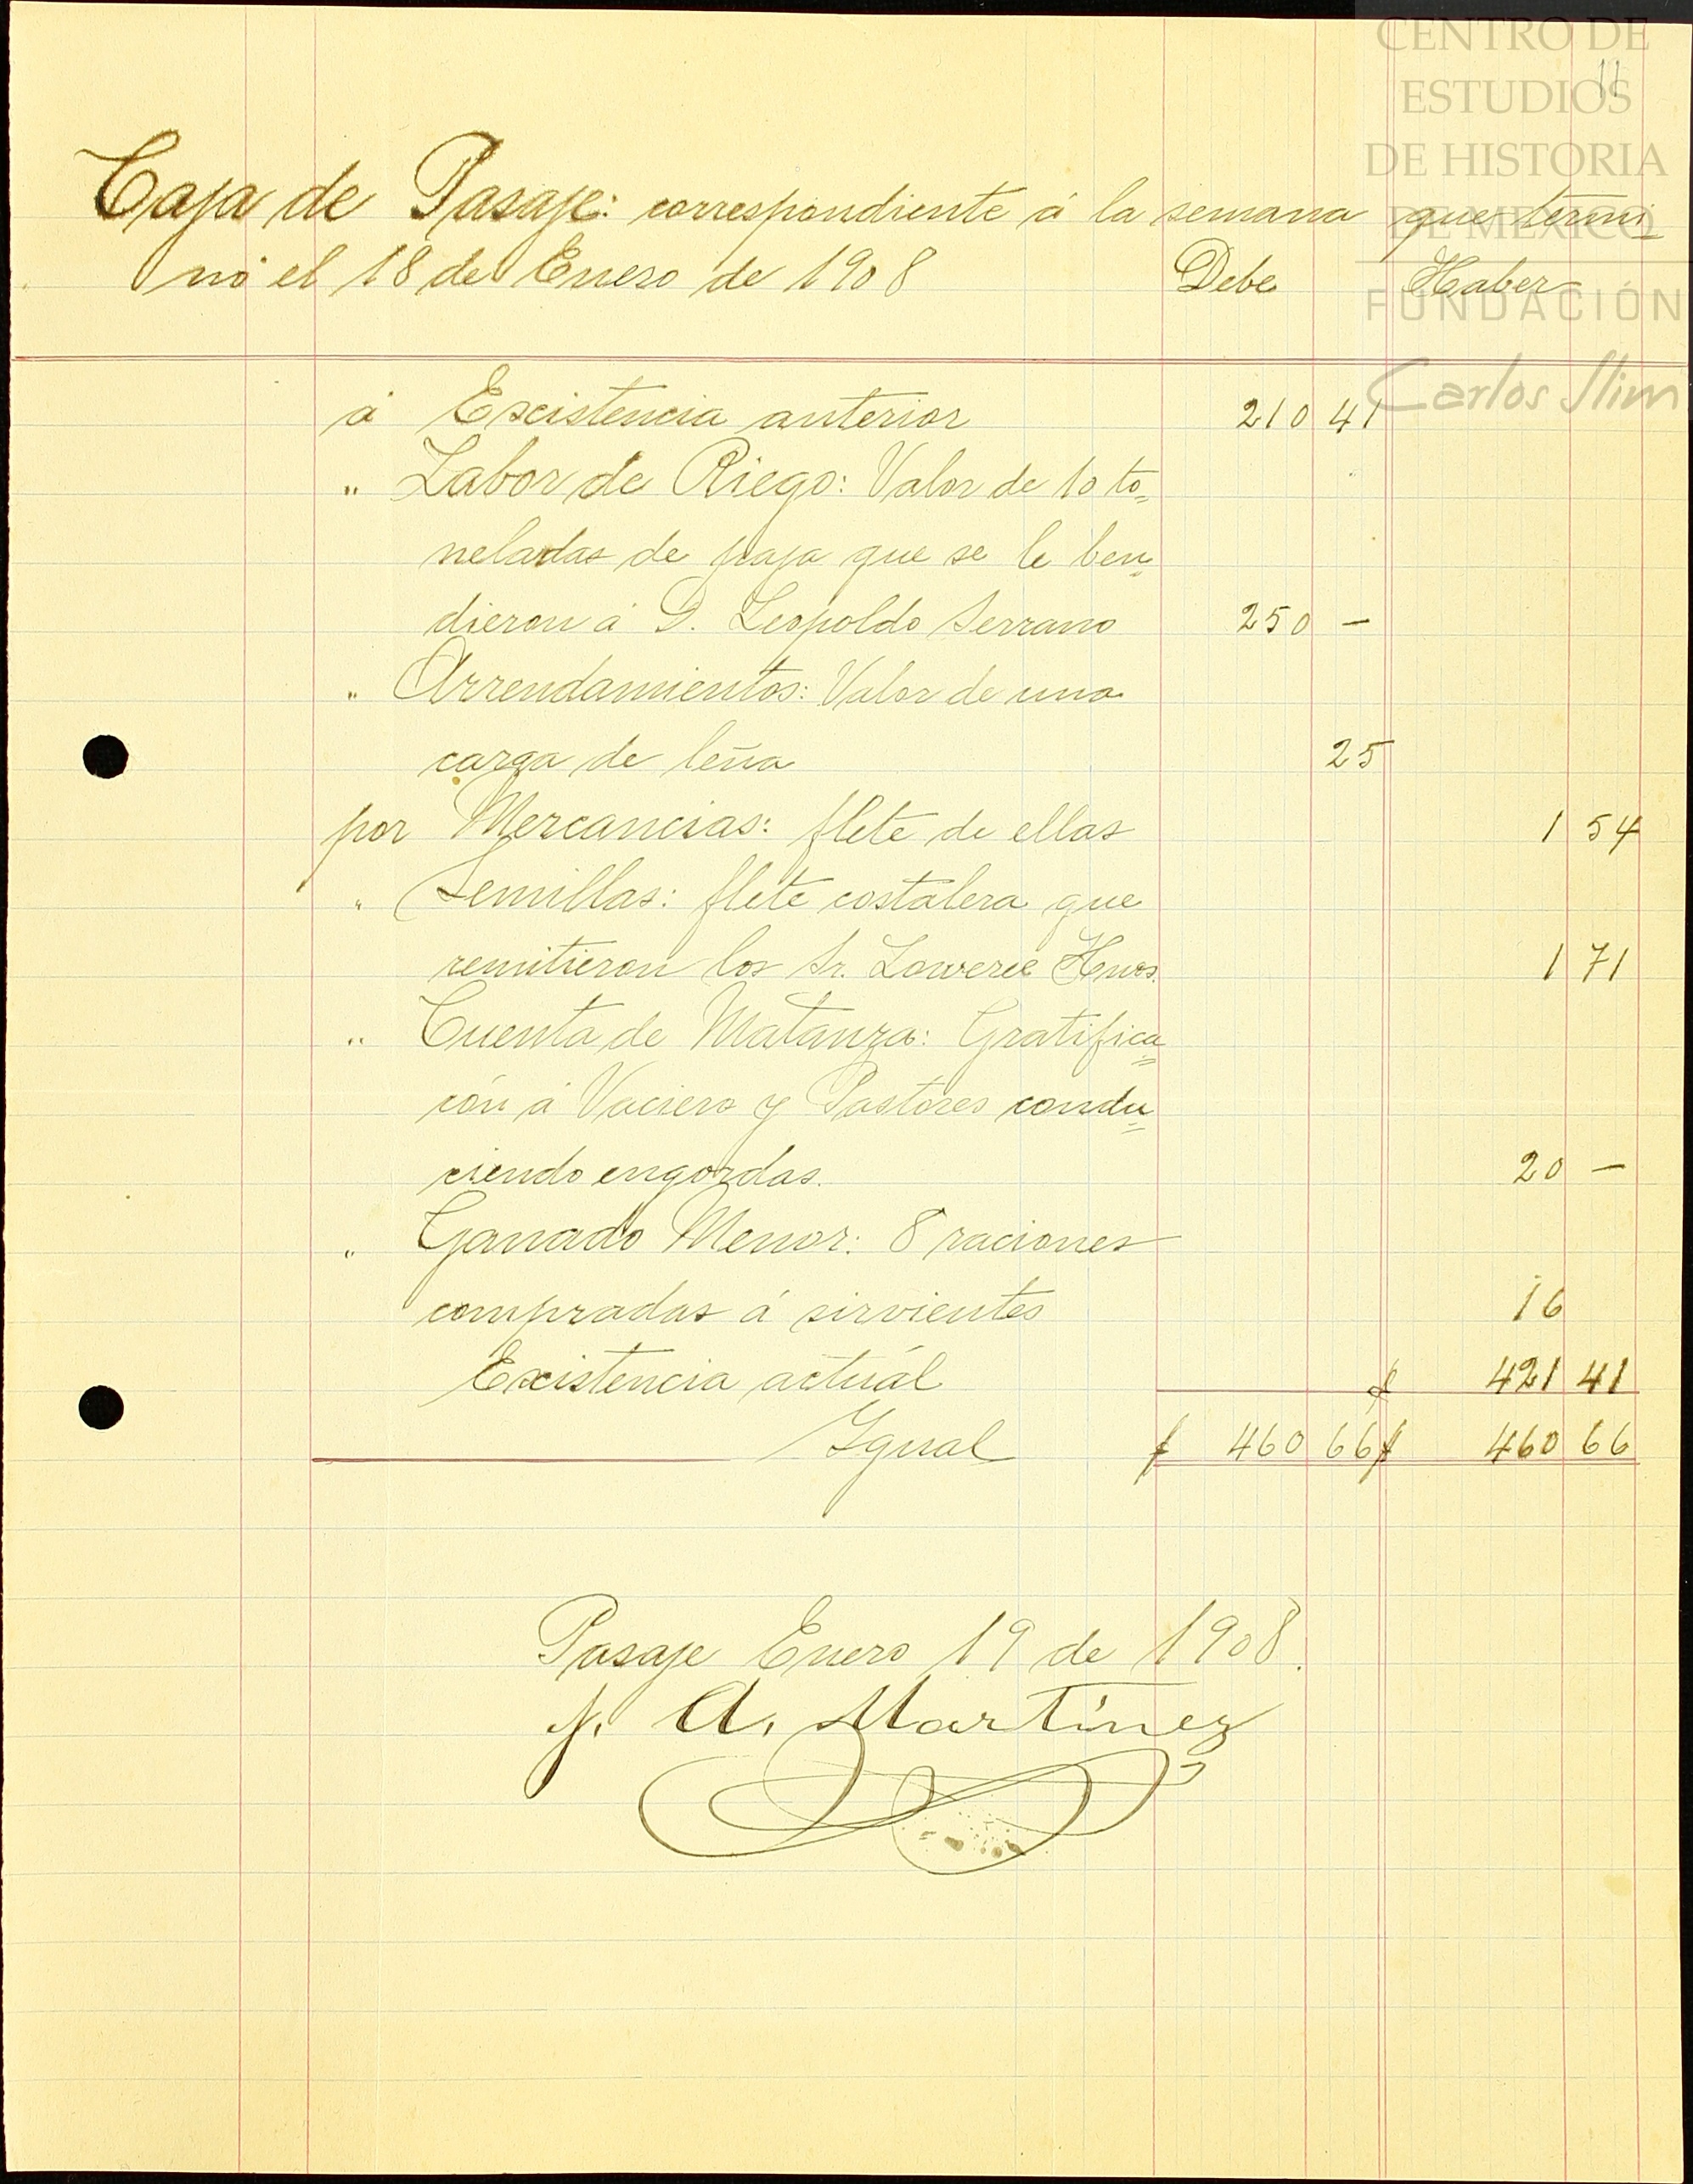 CENTRO DE
ESTUDIOS
DE HISTORIA
DE MÉXICO
FUNDACIÓN
Carlos Slim
11
Caja de Pasaje: correspondiente á la semana que termi_
nó el 18 de Enero de 1908 Debe Haber
á Excistencia anterior 210 41
" Labor de Riego: Valor de 10 to=
neladas de paja que se le ben=
dieron á D. Leopoldo Serrano 250 —
" Arrendamientos: Valor de una
carga de leña 25
por Mercancias: flete de ellas 1 54
" Semillas: flete costalera que
remitieron los Sr. Lowree Hnos. 1 71
" Cuenta de Matanza: Gratifica=
cón á Vaciero y Pastores condu=
ciendo engordas. 20 —
" Ganado Menor: 8 raciones
compradas á sirvientes 16
Excistencia actuál $ 421 41
Ygual $ 460 66 $ 460 66
Pasaje Enero 19 de 1908.
A. Martínez